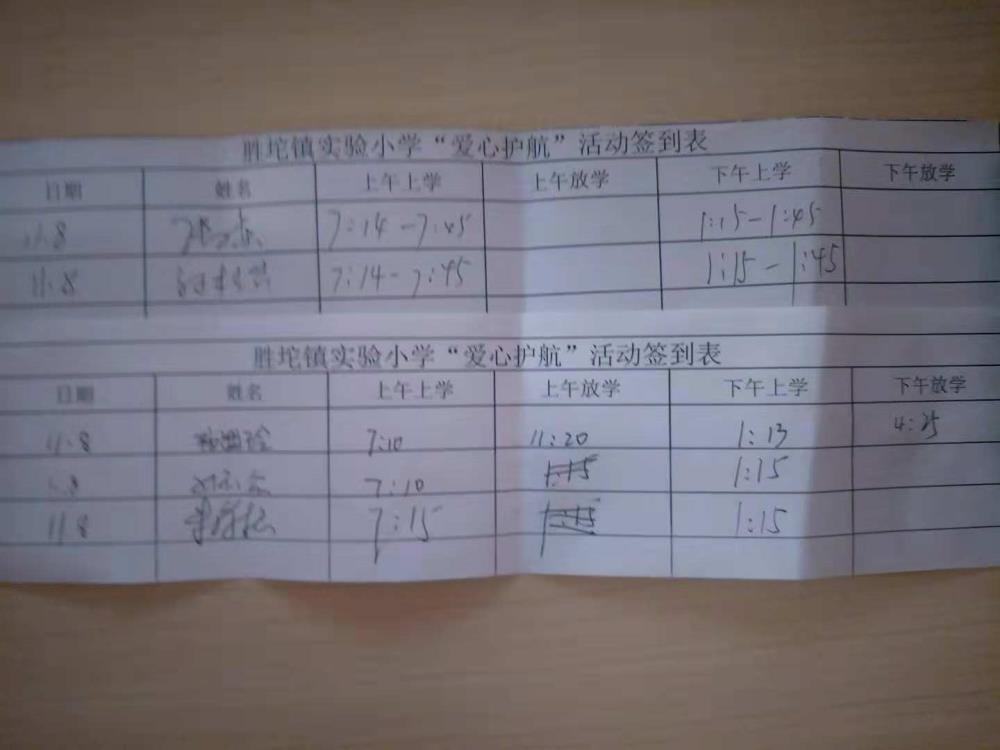 胜坨镇实验小学“爱心护航”活动签到表
日期 姓名 上午上学 上午放学 下午上学 下午放学
11.8 7:14-7:45 1:15-1:45
11.8 7:14-7:45 1:15-1:45
胜坨镇实验小学“爱心护航”活动签到表
日期 姓名 上午上学 上午放学 下午上学 下午放学
11.8 7:10 11:20 1:13 4:25
7:10 1:15
11.8 7:15 1:15